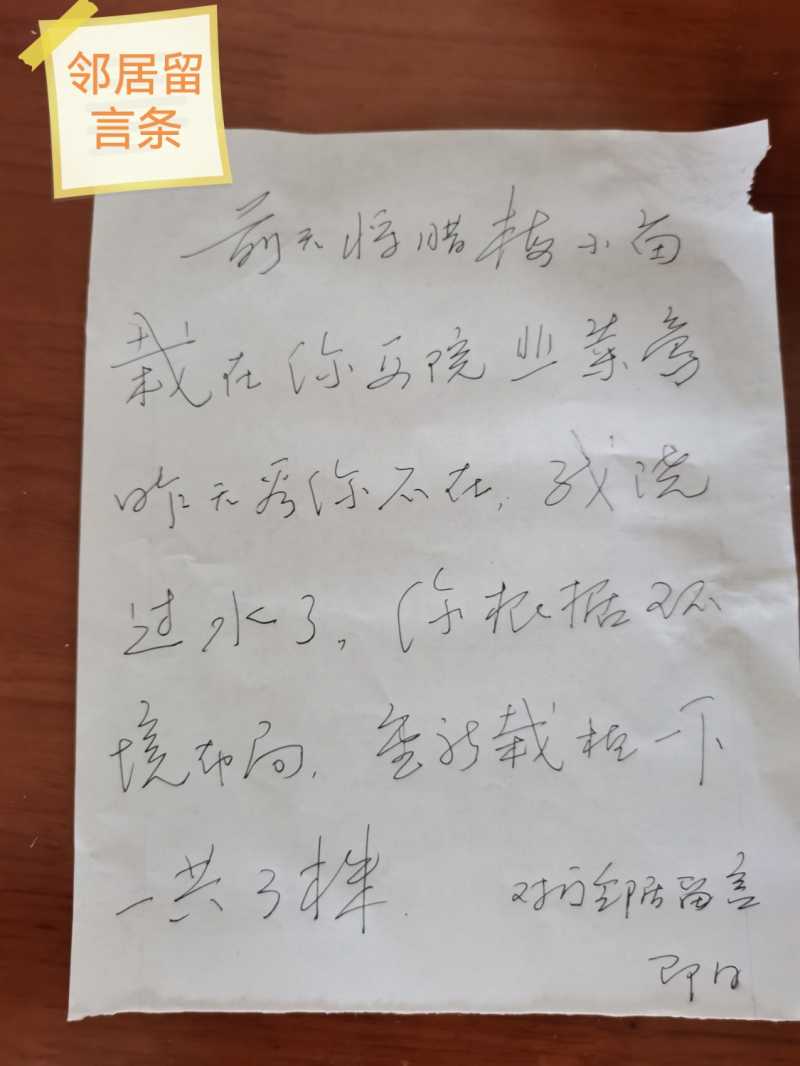 邻居留
言条
前天将腊梅小苗
栽在你西院韭菜旁
昨天看你不在,我浇
过水了,你根据环
境布局,重新栽植一下
一共3株.
对门邻居留言
即日